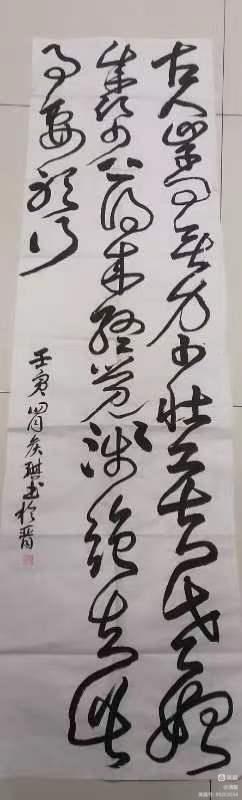 古人学问无遗力少壮工夫老始
成纸上得来终觉浅绝知此
事要躬行
壬寅 侯琪书於晋